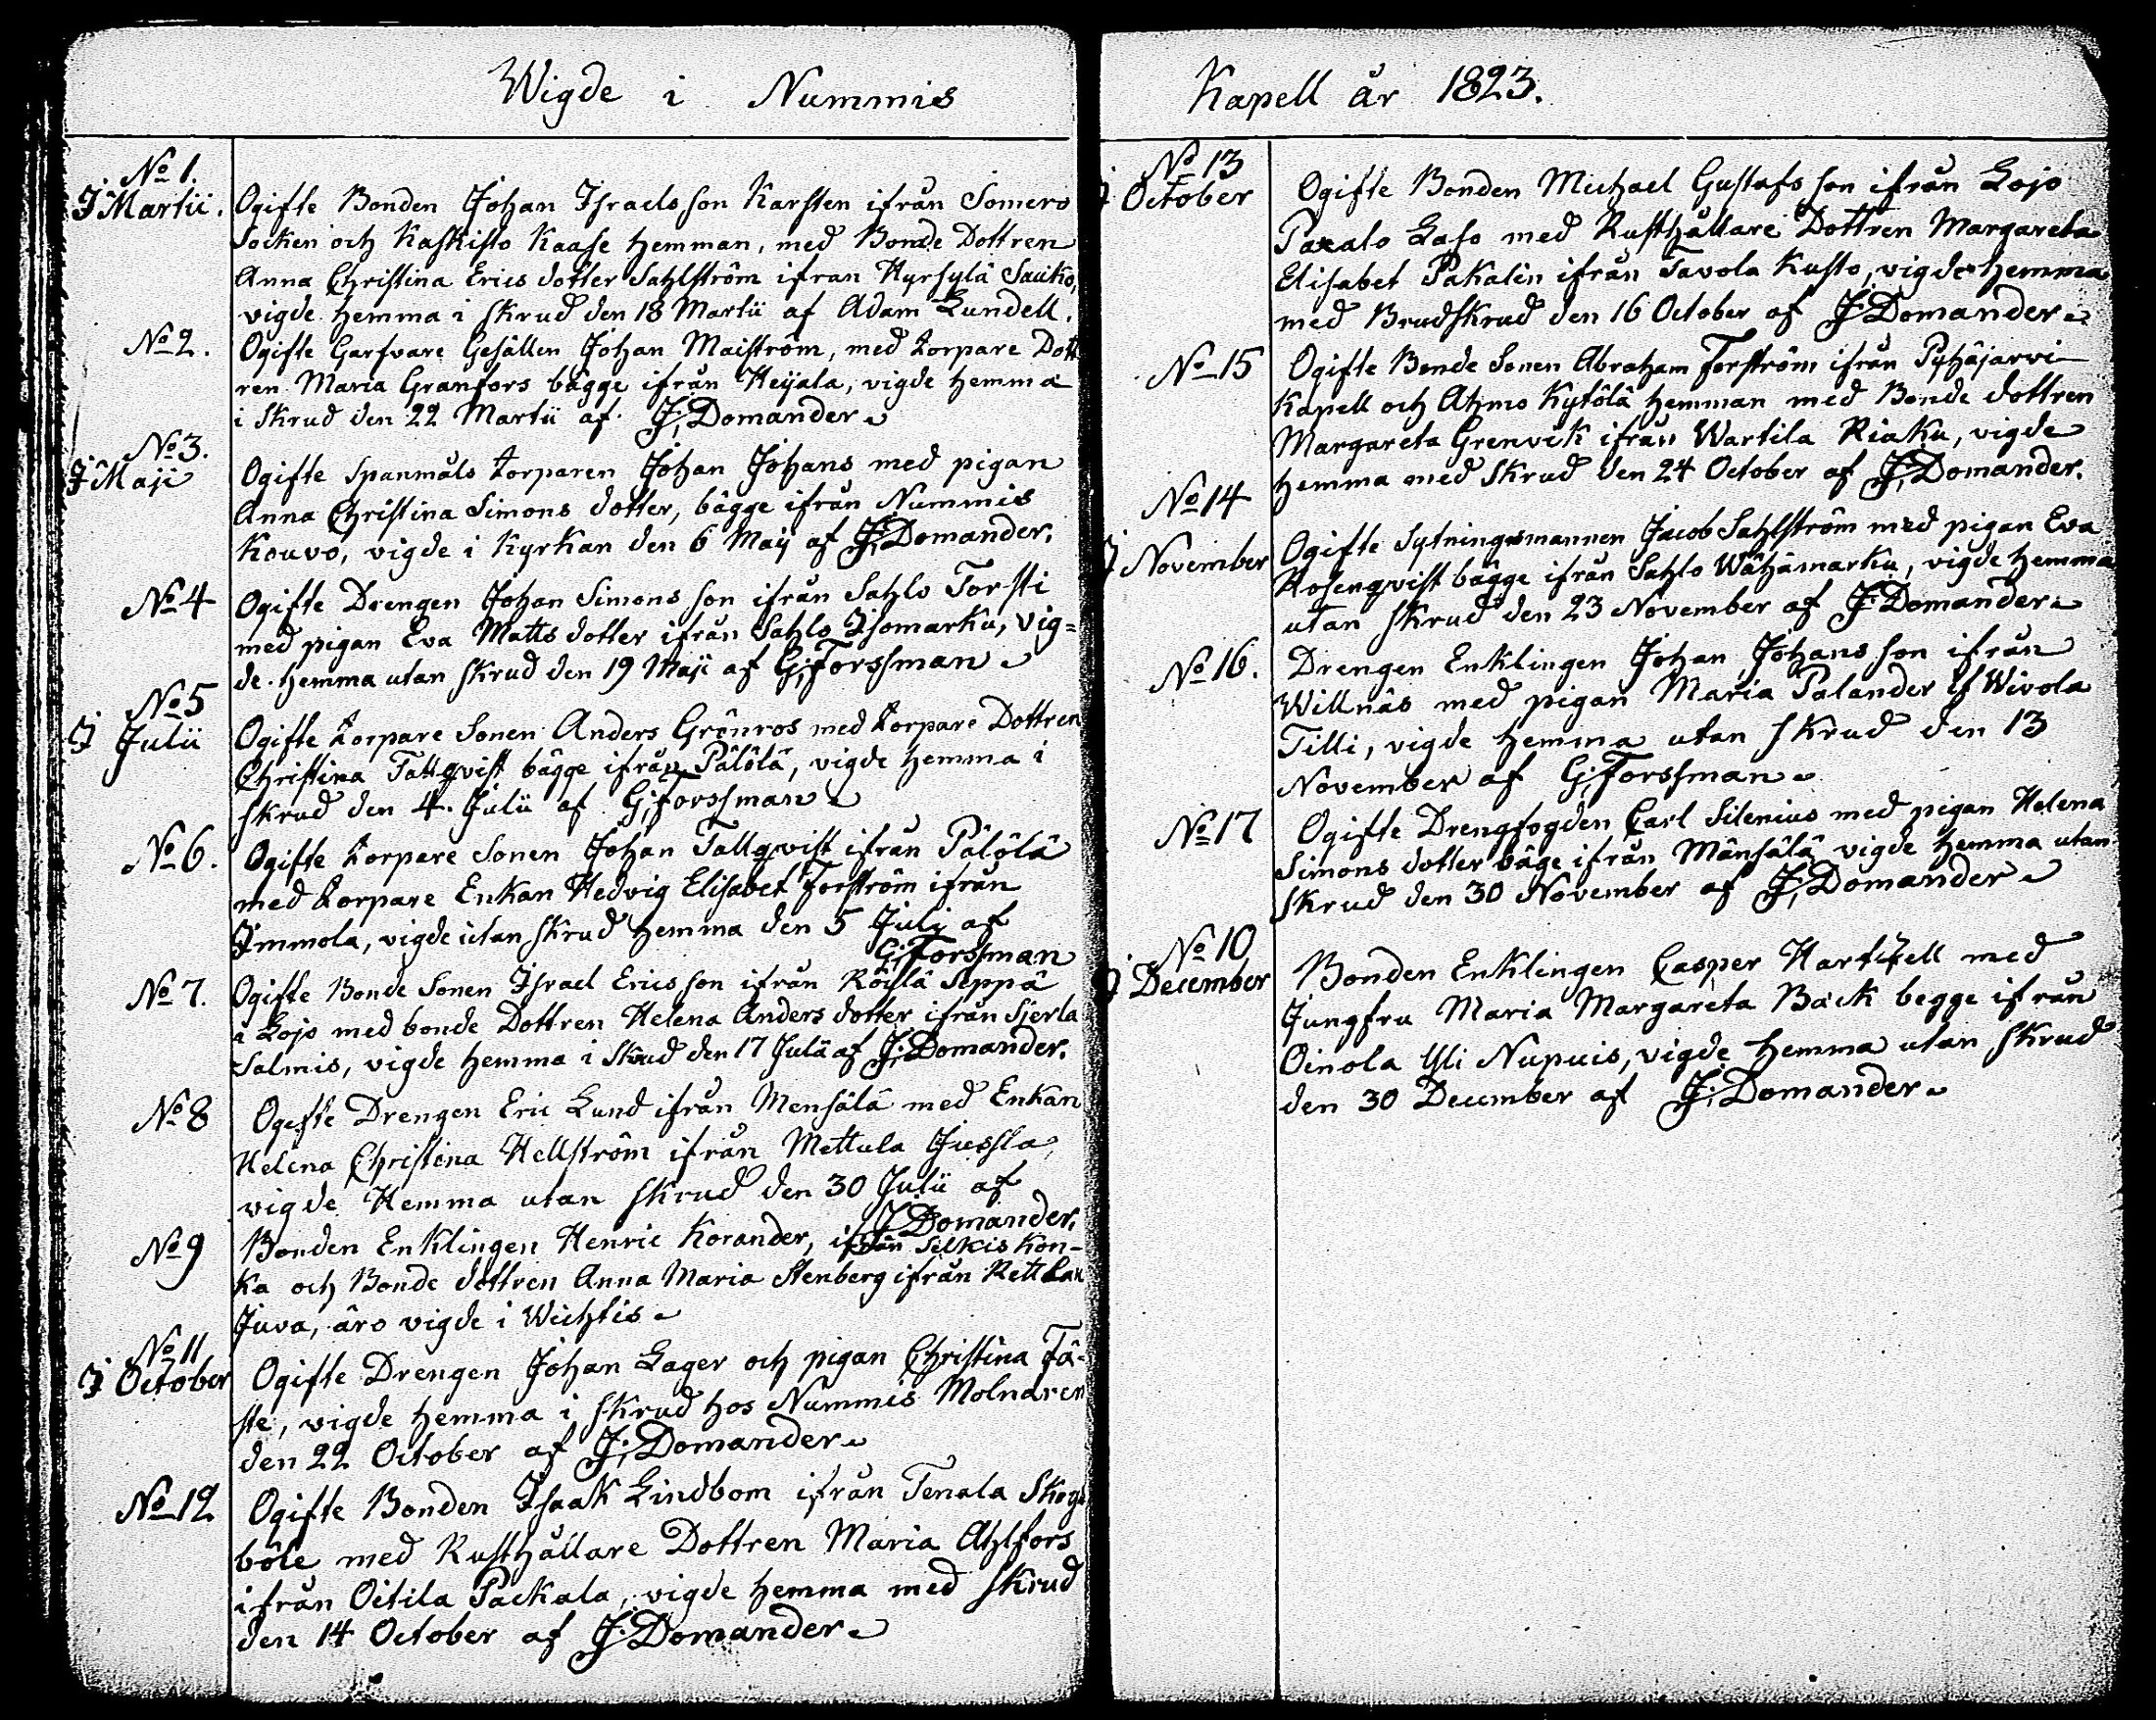 Wigde i Nummis
No 1.
I Martii.
Ogifte Bonden Johan Israelsson Karsten ifrån Somero
Socken och Kaskisto Kaase Hemman, med Bonde Dottren
Anna Christina Erics dotter Sahlström ifran Hyrsylä Sauko,
vigde hemma i skrud den 18 Martii af Adam Lundell.
No 2.
Ogifte Garfvare Gesällen Johan Maiström, med torpare Dott
ren Maria Granfors bägge ifrån Heijala, vigde hemma
i skrud den 22 Martii af J; Domander
No 3.
I Maji
Ogifte Spanmåls torparen Johan Johans med pigan
Anna Christina Simons dotter, bägge ifrån Nummis
Kouvo, vigde i Kyrkan den 6 Maij af J; Domander.
No 4
Ogifte Drengen Johan Simons son ifrån Sahlo Torsti
med pigan Eva Matts dotter ifrån Sahlo Isomarku, vig=
de hemma utan skrud den 19 Maji af G; Forssman
No 5
I Julii
Ogifte torpare Sonen Anders Grönros med torpare Dottren
Christina Tallqvist bägge ifrån Pälölä, vigde hemma i
skrud den 4. Julii af G; Forssman
No 6.
Ogifte torpare Sonen Johan Tallqvist ifrån Pälölä
med torpare Enkan Hedvig Elisabet Forström ifrån
Immola, vigde utan skrud hemma den 5 Julij af
G; Forssman
No 7.
Ogifte Bonde Sonen Israel Erics son ifrån Seppä
i Lojo med bonde Dottren Helena Anders dotter ifrån Sjerla
Salmis, vigde hemma i Skrud den 17 Julii af J; Domander.
No 8
Ogifte Drengen Eric Lund ifrån Mensälä med Enkan
Helena Christina Hellström ifrån Mettula Jussla,
vigde Hemma utan skrud den 30 Julii af
J Domander.
No 9
Bonden Enklingen Henric Korander, ifrån Selkis Kon-
ka och Bonde dottren Anna Maria Stenberg ifrån
Juva, äro vigde i Wichtis
No 11
I October
Ogifte Drengen Johan Lager och pigan Christina Fä-
ste, vigde hemma i skrud hos Nummis Molnaren
den 22 October af J; Domander
No 12
Ogifte Bonden Isaak Lindbom ifrån Tenala Skogs
böle med Rusthållare Dottren Maria Ahlfors
ifrån Oitila Packala, vigde hemma med skrud
den 14 October af J; Domander
Kapell år 1823.
No 13
I October
Ogifte Bonden Michael Gustafs son ifrån Lojo
Laso med Rusthållare Dottren Margareta
Elisabet Pakalin ifrån Tavola Kusto, vigde hemma
med Brudskrud den 16 October af J; Domander
No 15
Ogifte Bonde Sonen Abraham Forström ifrån Pyhäjarvi
Kapell och Ahmo Kytölä hemman med Bonde dottren
Margareta Grenvik ifrån Wartila Riaku, vigde
hemma med skrud den 24 October af J; Domander.
No 14
I November
Ogifte Sytningsmannen Jacob Sahlström med pigan Eva
Rosenqvist bägge ifrån Sahlo Wähämarku, vigde hemma
utan skrud den 23 November af J; Domander
No 16.
Drengen Enklingen Johan Johans son ifrån
Willnäs med pigan Maria Palander if Wivola
Tilli, vigde hemma utan skrud den 13
November af G; Forssman
No 17
Ogifte Drengfogden Carl Silenius med pigan Helena
Simons dotter bäge ifrån Mänsälä vigde hemma utan
skrud den 30 November af J; Domander
No 10
I December
Bonden Enklingen Casper Hartzell med
Jungfru Maria Margareta Bäck begge ifrån
Oinola Yli Nupuis, vigde hemma utan skrud
den 30 December af J; Domander